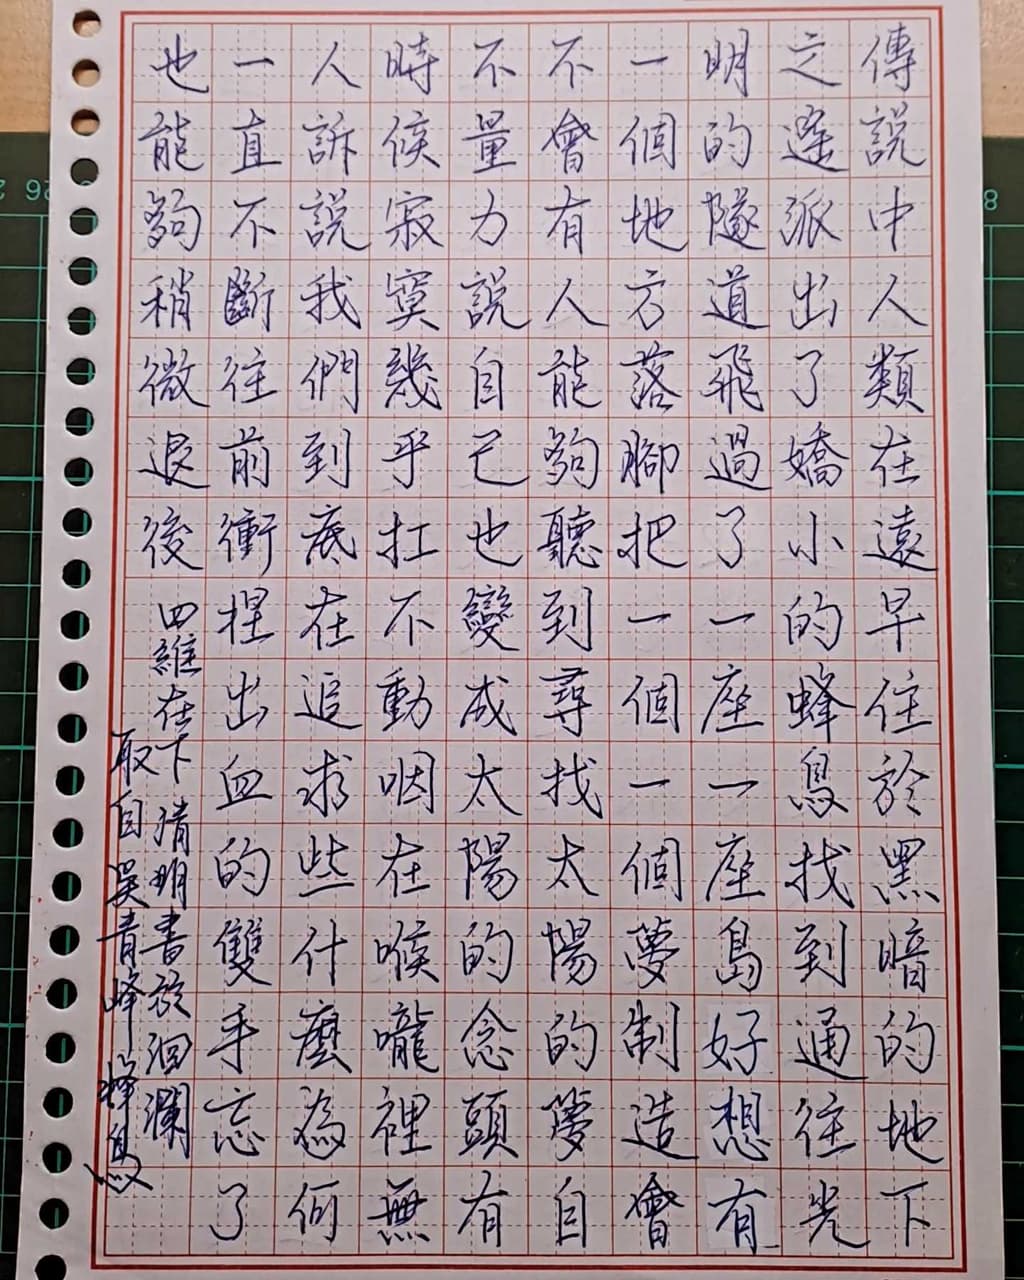 傳說中人類在遠早住於黑暗的地下
之遙派出了嬌小的蜂鳥找到通往光
明的隧道飛過了一座一座島好想有
一個地方落腳把一個一個夢制造會
不會有人能夠聽到尋找太陽的夢自
不量力說自己也變成太陽的念頭有
時候寂寞幾乎扛不動咽在喉嚨裡無
人訴說我們到底在追求些什麼為何
一直不斷往前衝捏出血的雙手忘了
也能夠稍微退後
四維在下清明書於洄瀾
取自吳青峰蜂鳥